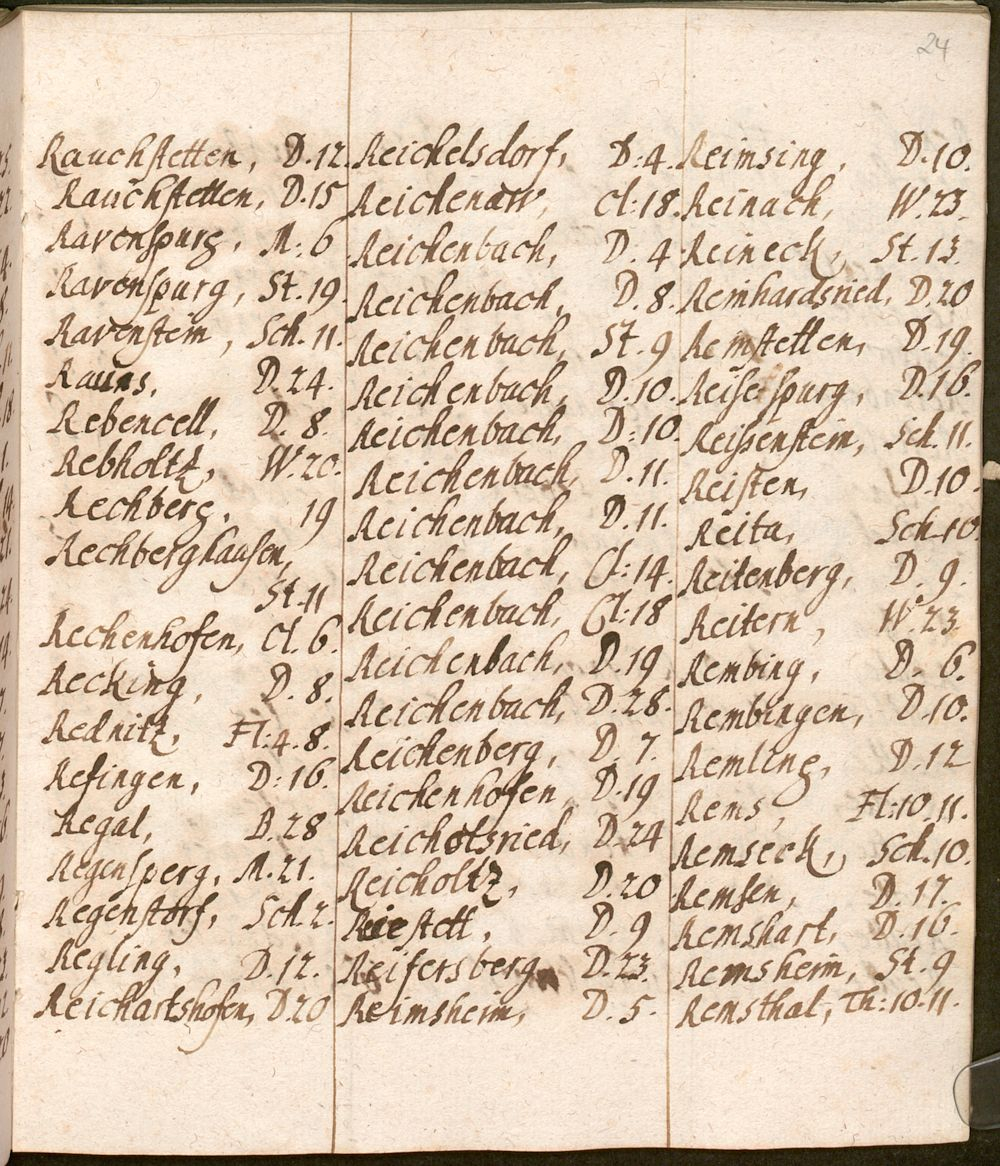 24
Rauchstetten, D.12.
Rauchstetten, D.15
Ravenspurg, M: 6
Ravenspurg, St.19.
Ravenstein, Sch.11.
Rauns, D.24.
Rebencell, D. 8.
Rebholtz, W.20.
Rechberg, 19
Rechberghausen,
St.11
Rechenhofen, Cl. 6.
Recking, D. 8.
Rednitz, Fl:4.8.
Refingen, D:16.
Regal, B.28
Regensperg, M.21.
Regenstorf, Sch.2.
Regling, D.12.
Reichartshofen, D.20
Reichelsdorf, D:4.
Reichenaw, Cl:18.
Reichenbach, D.4
Reichenbach, D.8.
Reichenbach, St.9
Reichenbach, D.10.
Reichenbach, D:10.
Reichenbach, D.11.
Reichenbach, D.11.
Reichenbach, Cl:14.
Reichenbach, Cl:18
Reichenbach, D.19
Reichenbach, D.28.
Reichenberg, D.7.
Reichenhofen, D.19
Reicholsried, D.24
Reicholtz, D.20
Riestett, D.9
Reifersberg, D.23.
Reimsheim, D.5.
Reimsing, D.10.
Reinach, W.23.
Reineck, St.13.
Reinhardsried, D.20
Remstetten, D.19.
Reisespurg, D.16.
Reissenstein, Sch.11.
Reisten, D.10.
Reita, Sch.10.
Reitenberg, D. 9.
Reitern, W.23
Rembing, D. 6.
Rembingen, D.10.
Remling, D.12
Rems, Fl:10.11.
Remseck, Sch.10.
Remsen, D.17.
Remshart, D.16.
Remsheim, St.9
Remsthal, Th:10.11.